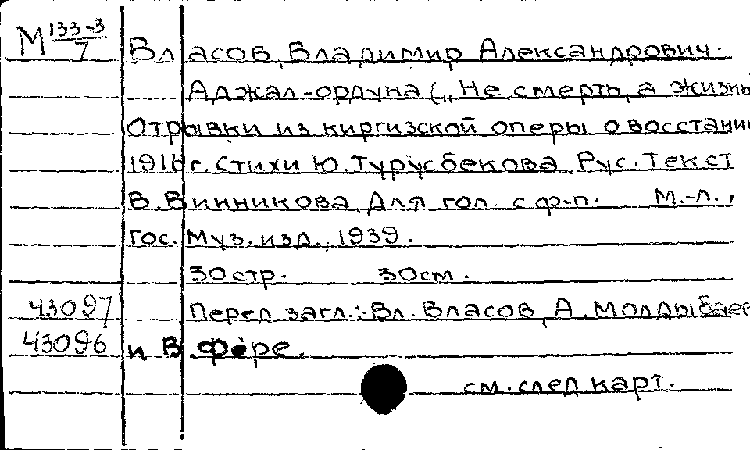 М 133-3/7
Власов, Владимир Александрович.
Аджал-ордуна („Не смерть, а жизнь
Отрывки из киргизской оперы о восстании
1916 г. Стихи Ю. Турусбекова. Рус. текст
В. Винникова. Для гол. с ф-п. М.-Л.,
Гос. Муз. изд., 1939.
30 стр. 30 см.
43097 Перед загл.: Вл. Власов, А. Молдыбаев
43096 и В. Фере.
см. след карт.